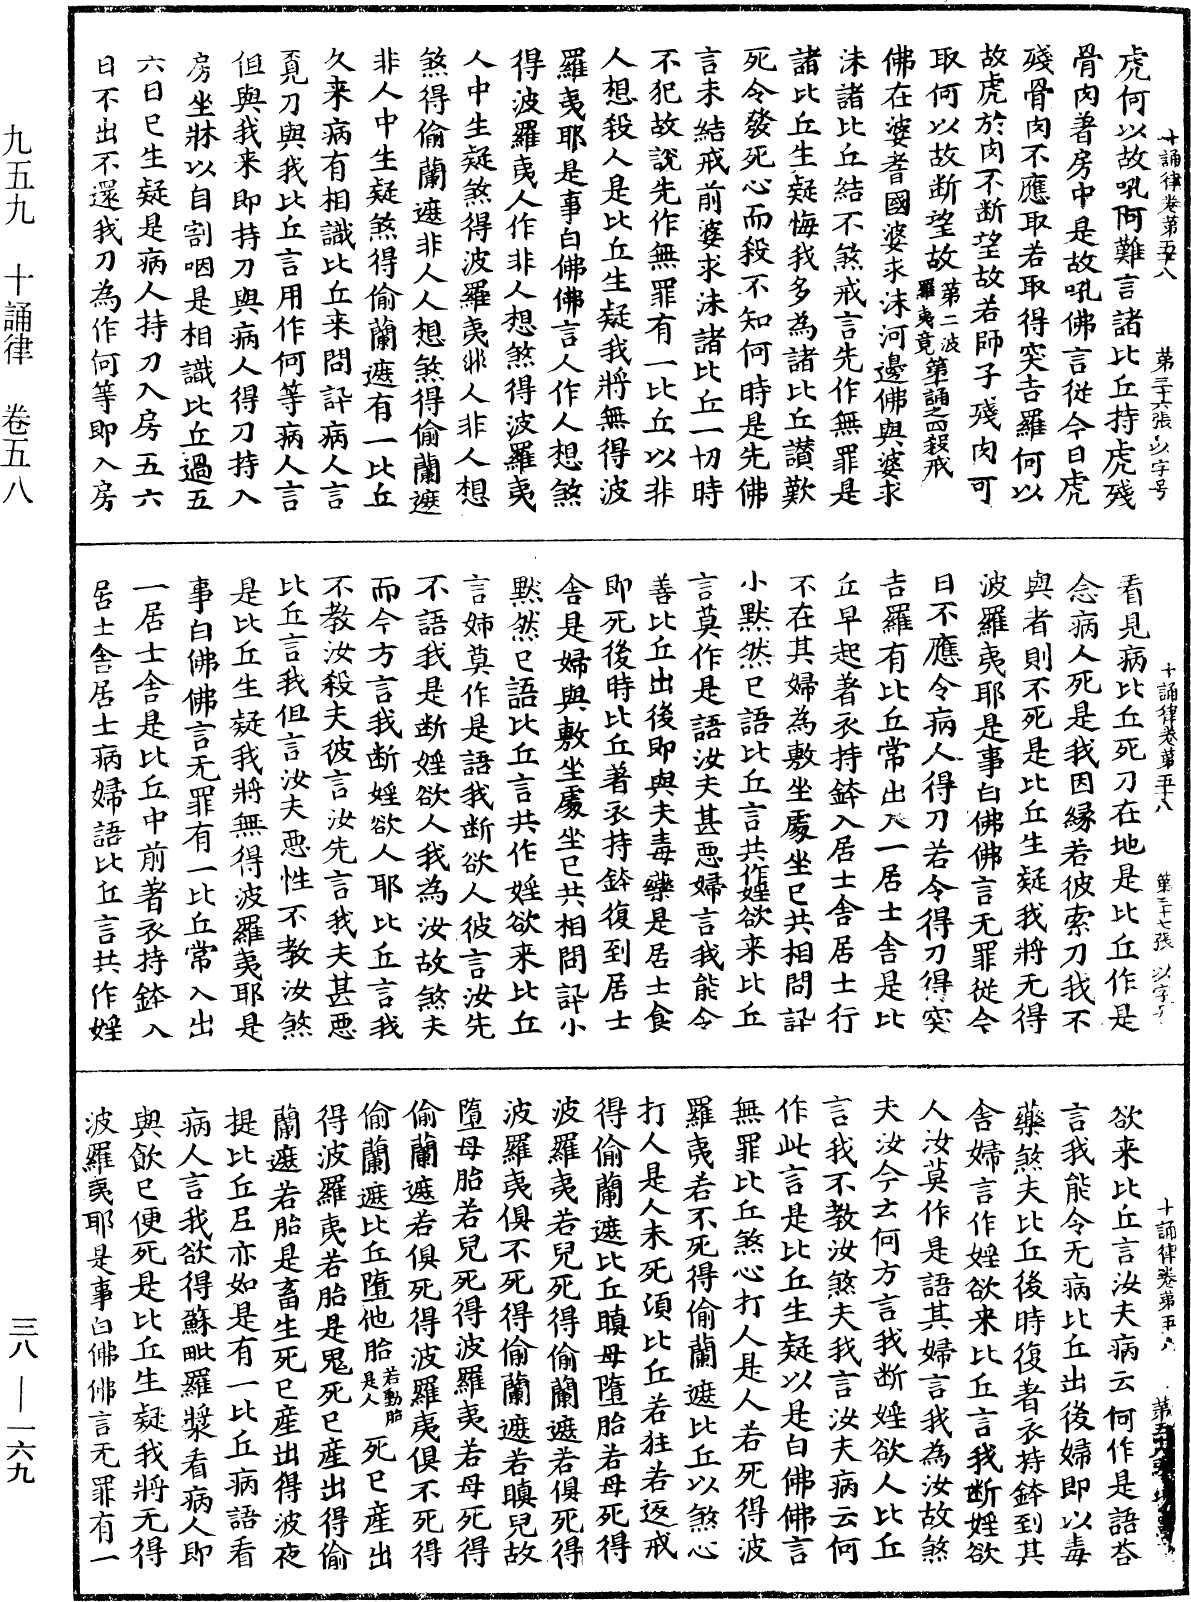 十誦律卷第五十八　第三十六張　以字号
虎何以故吼阿難言諸比丘持虎殘
骨肉著房中是故吼佛言從今日虎
殘骨肉不應取若取得突吉羅何以
故虎於肉不斷望故若師子殘肉可
取何以故断望故第二波羅夷竟第四誦之殺戒
佛在婆耆國婆求沫河邊佛與婆求
沫諸比丘結不煞戒言先作無罪是
諸比丘生疑悔我多為諸比丘讃歎
死令發死心而殺不知何時是先佛
言未結戒前婆求沫諸比丘一切時
不犯故說先作無罪有一比丘以非
人想殺人是比丘生疑我將無得波
羅夷耶是事白佛佛言人作人想煞
得波羅夷人作非人想煞得波羅夷
人中生疑煞得波羅夷非人非人想
煞得偷蘭遮非人人想煞得偷蘭遮
非人中生疑煞得偷蘭遮有一比丘
久来病有相識比丘来問訊病人言
覓刀與我比丘言用作何等病人言
但與我来即持刀與病人得刀持入
房坐牀以自割咽是相識比丘過五
六日已生疑是病人持刀入房五六
日不出不還我刀為作何等即入房
十誦律卷第五十八　第三十七張　以字号
看見病比丘死刀在地是比丘作是
念病人死是我因縁若彼索刀我不
與者則不死是比丘生疑我將无得
波羅夷耶是事白佛佛言无罪從今
日不應令病人得刀若令得刀得突
吉羅有比丘常出入一居士舍是比
丘早起著衣持鉢入居士舍居士行
不在其婦為敷坐處坐已共相問訊
小默然已語比丘言共作婬欲来比丘
言莫作是語汝夫甚惡婦言我能令
善比丘出後即與夫毒藥是居士食
即死後時比丘著衣持鉢復到居士
舍是婦與敷坐處坐已共相問訊小
默然已語比丘言共作婬欲来比丘
言姉莫作是語我断欲人彼言汝先
不語我是断婬欲人我為汝故煞夫
而今方言我断婬欲人耶比丘言我
不教汝殺夫彼言汝先言我夫甚惡
比丘言我但言汝夫惡性不教汝煞
是比丘生疑我將無得波羅夷耶是
事白佛佛言无罪有一比丘常入出
一居士舍是比丘中前著衣持鉢入
居士舍居士病婦語比丘言共作婬
十誦律卷第五十八
欲来比丘言汝夫病云何作是語荅
言我能令无病比丘出後婦即以毒
藥煞夫比丘後時復著衣持鉢到其
舍婦言作婬欲来比丘言我断婬欲
人汝莫作是語其婦言我為汝故煞
夫汝今云何方言我断婬欲人比丘
言我不教汝煞夫我言汝夫病云何
作此言是比丘生疑以是白佛佛言
無罪比丘煞心打人是人若死得波
羅夷若不死得偷蘭遮比丘以煞心
打人是人未死頃比丘若狂若返戒
得偷蘭遮比丘瞋母墮胎若母死得
波羅夷若兒死得偷蘭遮若俱死得
波羅夷俱不死得偷蘭遮若瞋兒故
墮母胎若兒死得波羅夷若母死得
偷蘭遮若俱死得波羅夷俱不死得
偷蘭遮比丘墮他胎若動胎是人死已產出
得波羅夷若胎是鬼死已產出得偷
蘭遮若胎是畜生死已產出得波夜
提比丘尼亦如是有一比丘病語看
病人言我欲得蘇毗羅漿看病人即
與飲已便死是比丘生疑我將无得
波羅夷耶是事白佛佛言无罪有一
九五九　十誦律　卷五八
三八——一六九